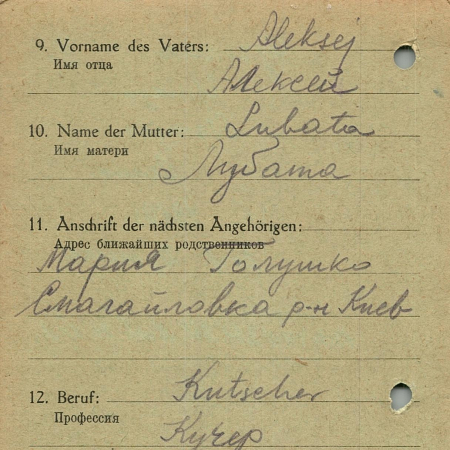 9. Vorname des Vaters: Aleksej
Имя отца
Алексей
10. Name der Mutter: Lubata
Имя матери
Лубата
11. Anschrift der nächsten Angehörigen:
Адрес ближайших родственников
Мария Голушко
Смагайловка р-н Киев
12. Beruf: Kutscher
Профессия
Кучер